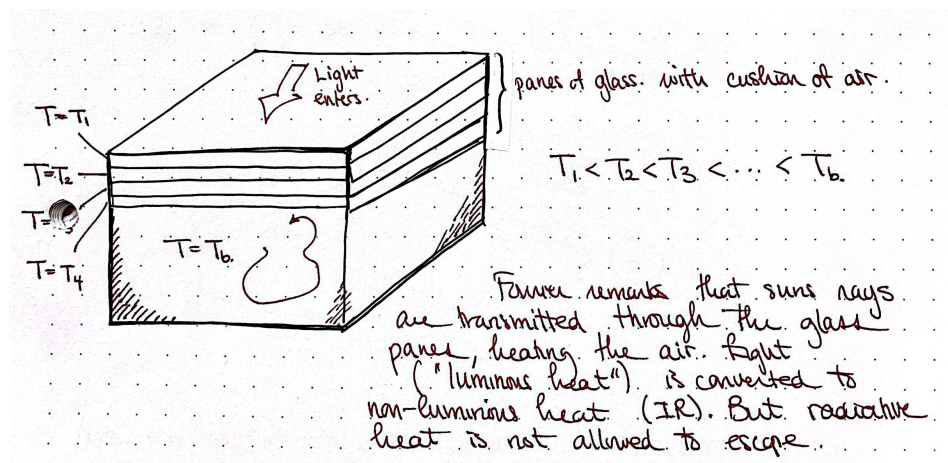 Light
enters.
panes of glass. with cushion of air.
T=T1
T=T2
T=
T=T4
T=Tb.
T1<T2<T3<...<Tb.
Fourier remarks that suns rays
are transmitted through the glass
panes, heating the air. Light
("luminous heat") is converted to
non-luminous heat (IR). But radiative
heat is not allowed to escape.